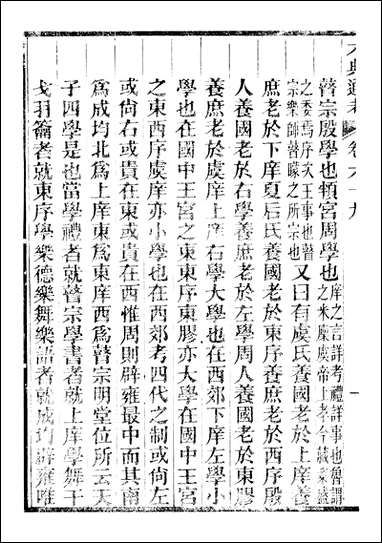 典通考 卷六十九 一
瞽宗殷學也頖宮周學也庠之言詳考禮詳事也魯謂之米廩虞帝上孝今藏粢盛
之委焉序次王事也瞽宗樂師瞽矇之所宗也又曰有虞氏養國老於上庠養
庶老於下庠夏后氏養國老於東序養庶老於西序殷
人養國老於右學養庶老於左學周人養國老於東膠
養庶老於虞庠上庠右學大學也在西郊下庠左學小
學也在國中王宮之東東序東膠亦大學在國中王宮
之東西序虞庠亦小學也在西郊考四代之制或尙左
或尙右或貴在東或貴在西惟周則辟雍最中而其南
爲成均北爲上庠東爲東庠西爲瞽宗明堂位所云天
子四學是也當學禮者就瞽宗學書者就上庠學舞干
戈羽籥者就東序學樂德樂舞樂語者就成均辟雍唯